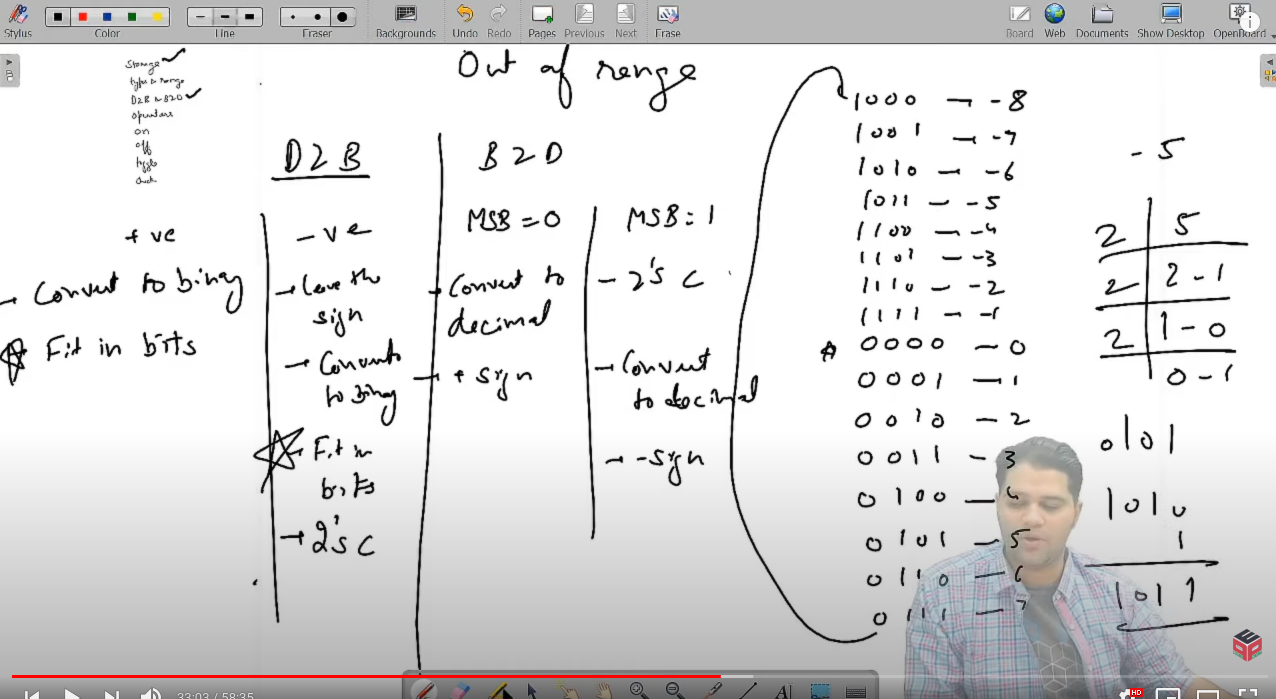 Stylus
Color
Line
Eraser
Backgrounds
Undo
Redo
Pages
Previous
Next
Erase
Board
Web
Documents
Show Desktop
OpenBoard
Storage
types & range
D2B & B2D
operators
on
off
toggle
Check
Out of range
D2B
+ve
→ Convert to binary
Fit in bits
-ve
→ Leave the
sign
→ Convert to
to binary
→ Fit in
bits
→ 2's C
B2D
MSB = 0
→ Convert to
decimal
→ + sign
MSB: 1
- 2's C
→ Convert
to decimal
→ - sign
1000 → -8
1001 → -7
1010 → -6
1011 — -5
1100 — -4
1101 → -3
1110 — -2
1111 — -1
0000 — 0
0001 — 1
0010 — 2
0011 — 3
0100 — 4
0101 — 5
0110 — 6
0111 — 7
-5
2 | 5
2 | 2 - 1
2 | 1 - 0
0 - 1
0101
1010
1
1011
33:03 / 58:35
HD